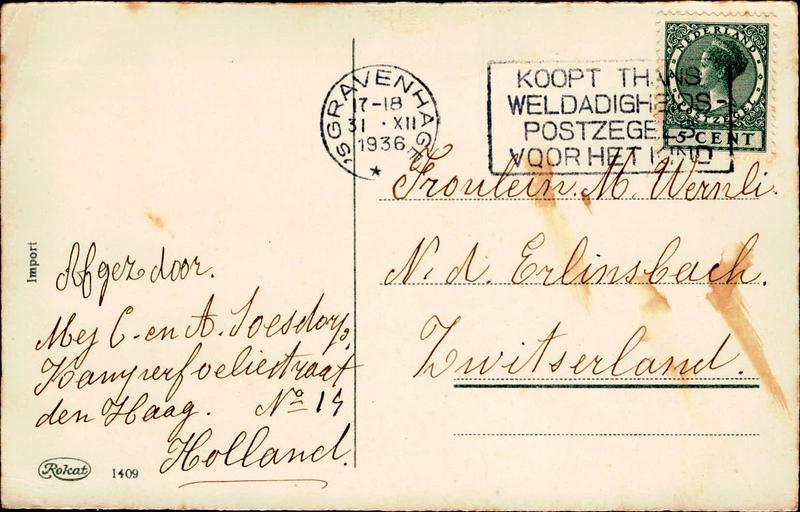 'S GRAVENHAGE
17-18
31 · XII
1936
KOOPT THANS
WELDADIGHEIDS-
POSTZEGELS
VOOR HET KIND
NEDERLAND
POSTZEGEL
5 CENT
Froulein. M. Wernli.
N. d. Erlinsbach.
Zwitserland.
Import
Afgez door.
Mej C. en A. Soesdorp,
Kamperfoeliestraat
den Haag. No 14
Holland.
Rokat 1409